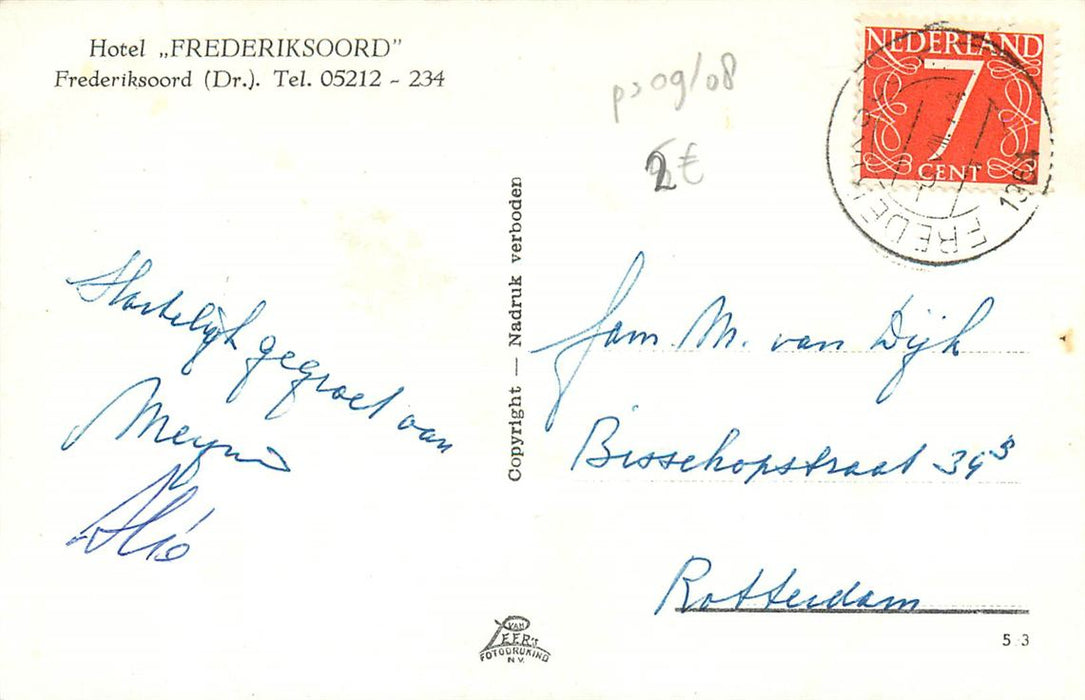 Hotel „FREDERIKSOORD”
Frederiksoord (Dr.). Tel. 05212 - 234
09/08
2 €
NEDERLAND
7
CENT
FREDERIKSOORD
1964
Copyright — Nadruk verboden
Hartelijk gegroet van
Meyn
Alie
Fam. M. van Dijk
Bisschopstraat 39
Rotterdam
VAN
LEER's
FOTODRUKIND
N.V.
5 3